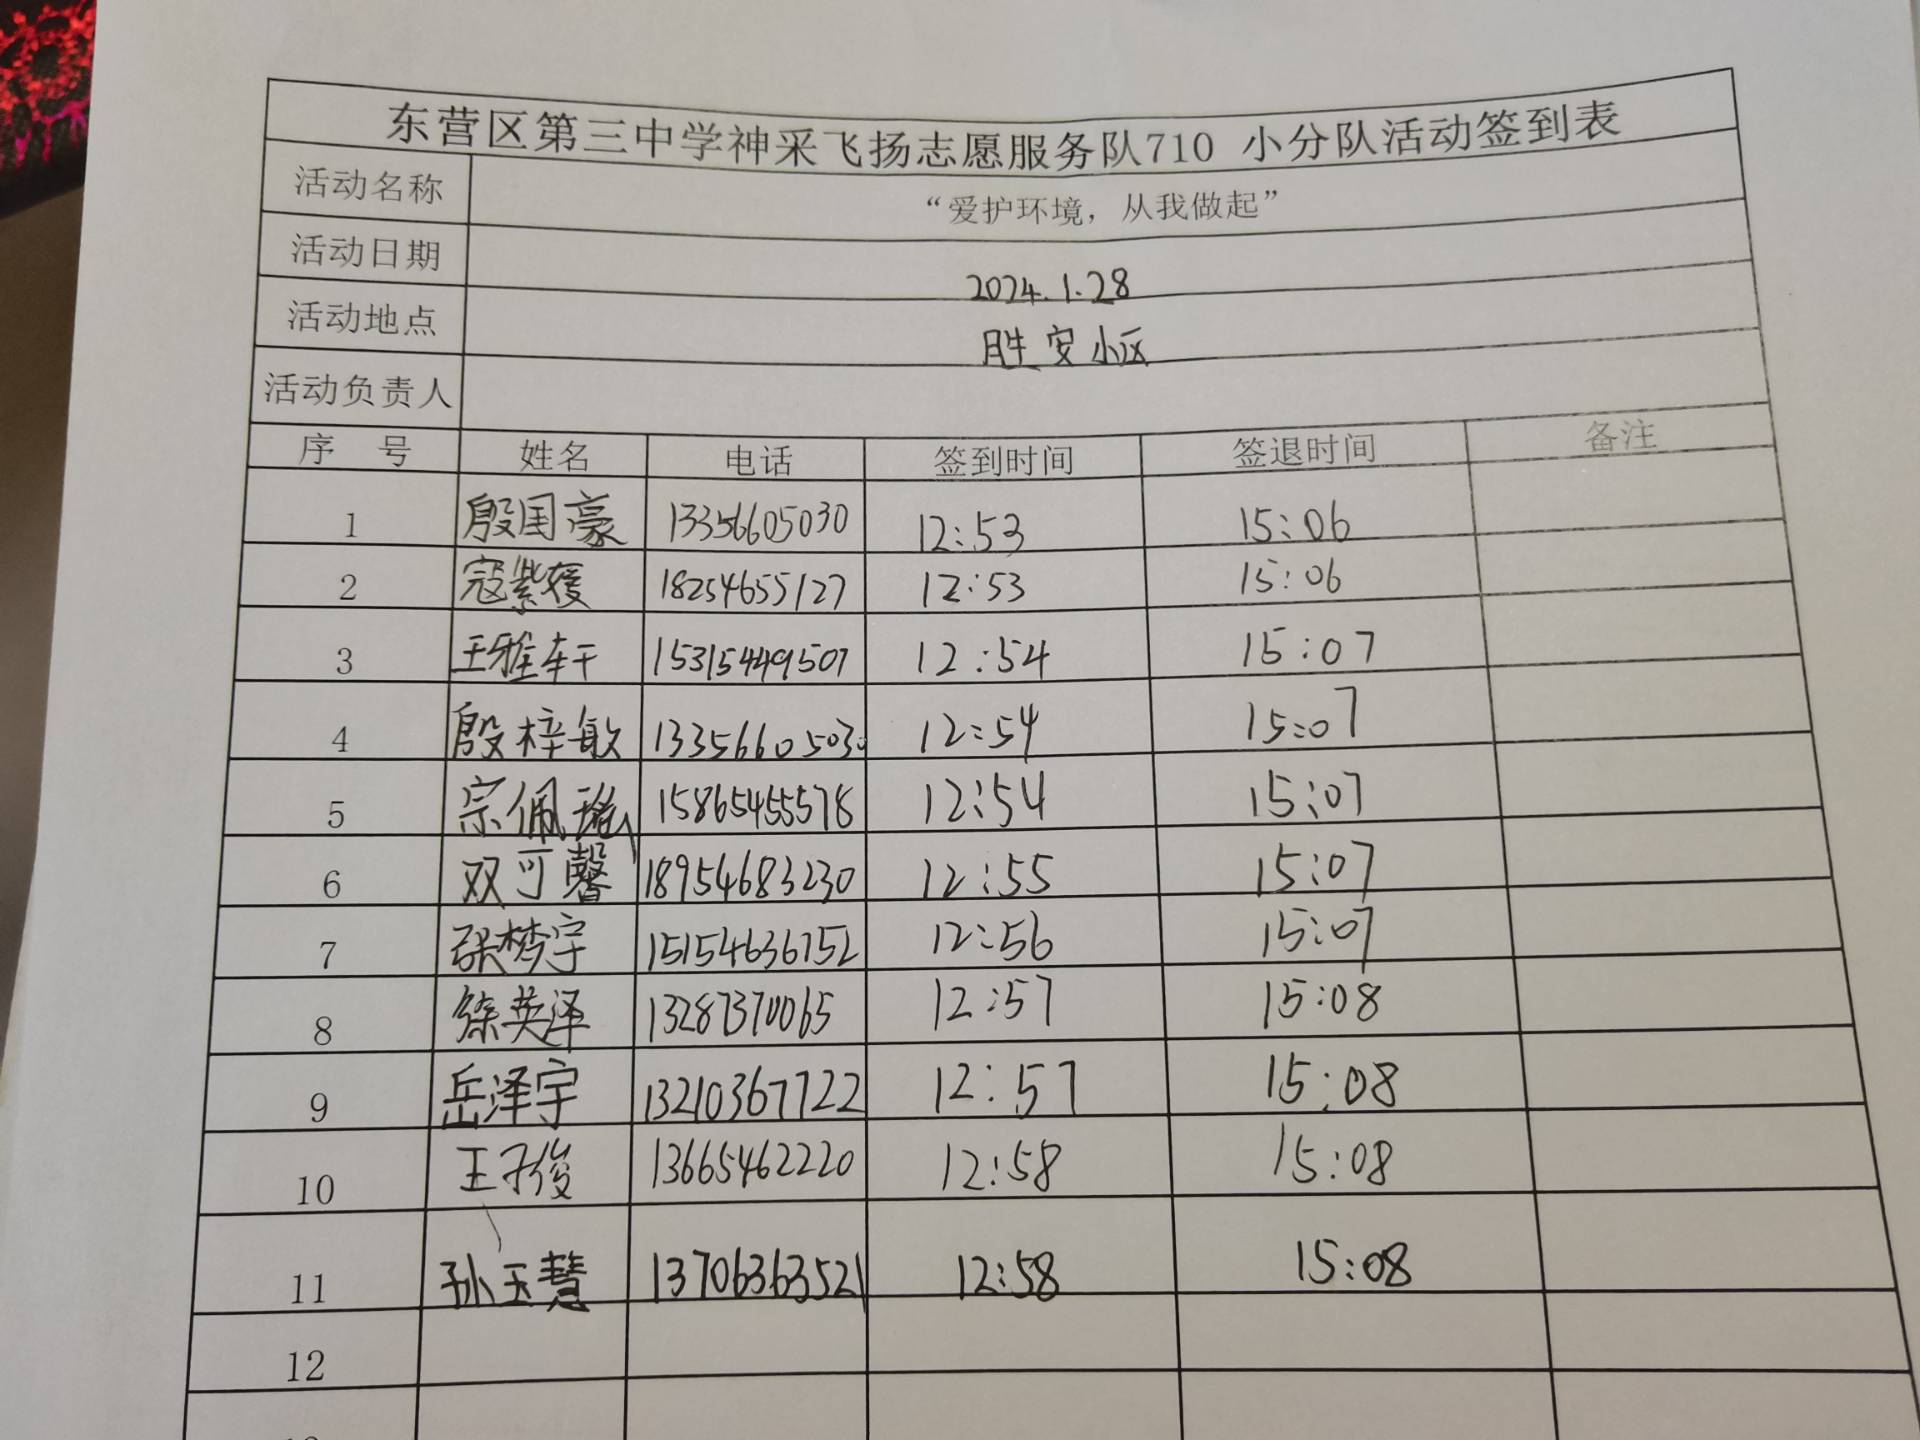 东营区第三中学神采飞扬志愿服务队710 小分队活动签到表
活动名称 “爱护环境，从我做起”
活动日期 2024.1.28
活动地点 胜安小区
活动负责人
序 号 姓名 电话 签到时间 签退时间 备注
1 殷国豪 13356605030 12:53 15:06
2 寇紫媛 18254655127 12:53 15:06
3 王雅轩 15315449507 12:54 15:07
4 殷梓敏 13356605030 12:54 15:07
5 宗佩瑶 15865455578 12:54 15:07
6 双可馨 18954683230 12:55 15:07
7 张梦宇 15154636752 12:56 15:07
8 徐英泽 13287370065 12:57 15:08
9 岳泽宇 13210367722 12:57 15:08
10 王子俊 13665462220 12:58 15:08
11 孙玉慧 13706363521 12:58 15:08
12